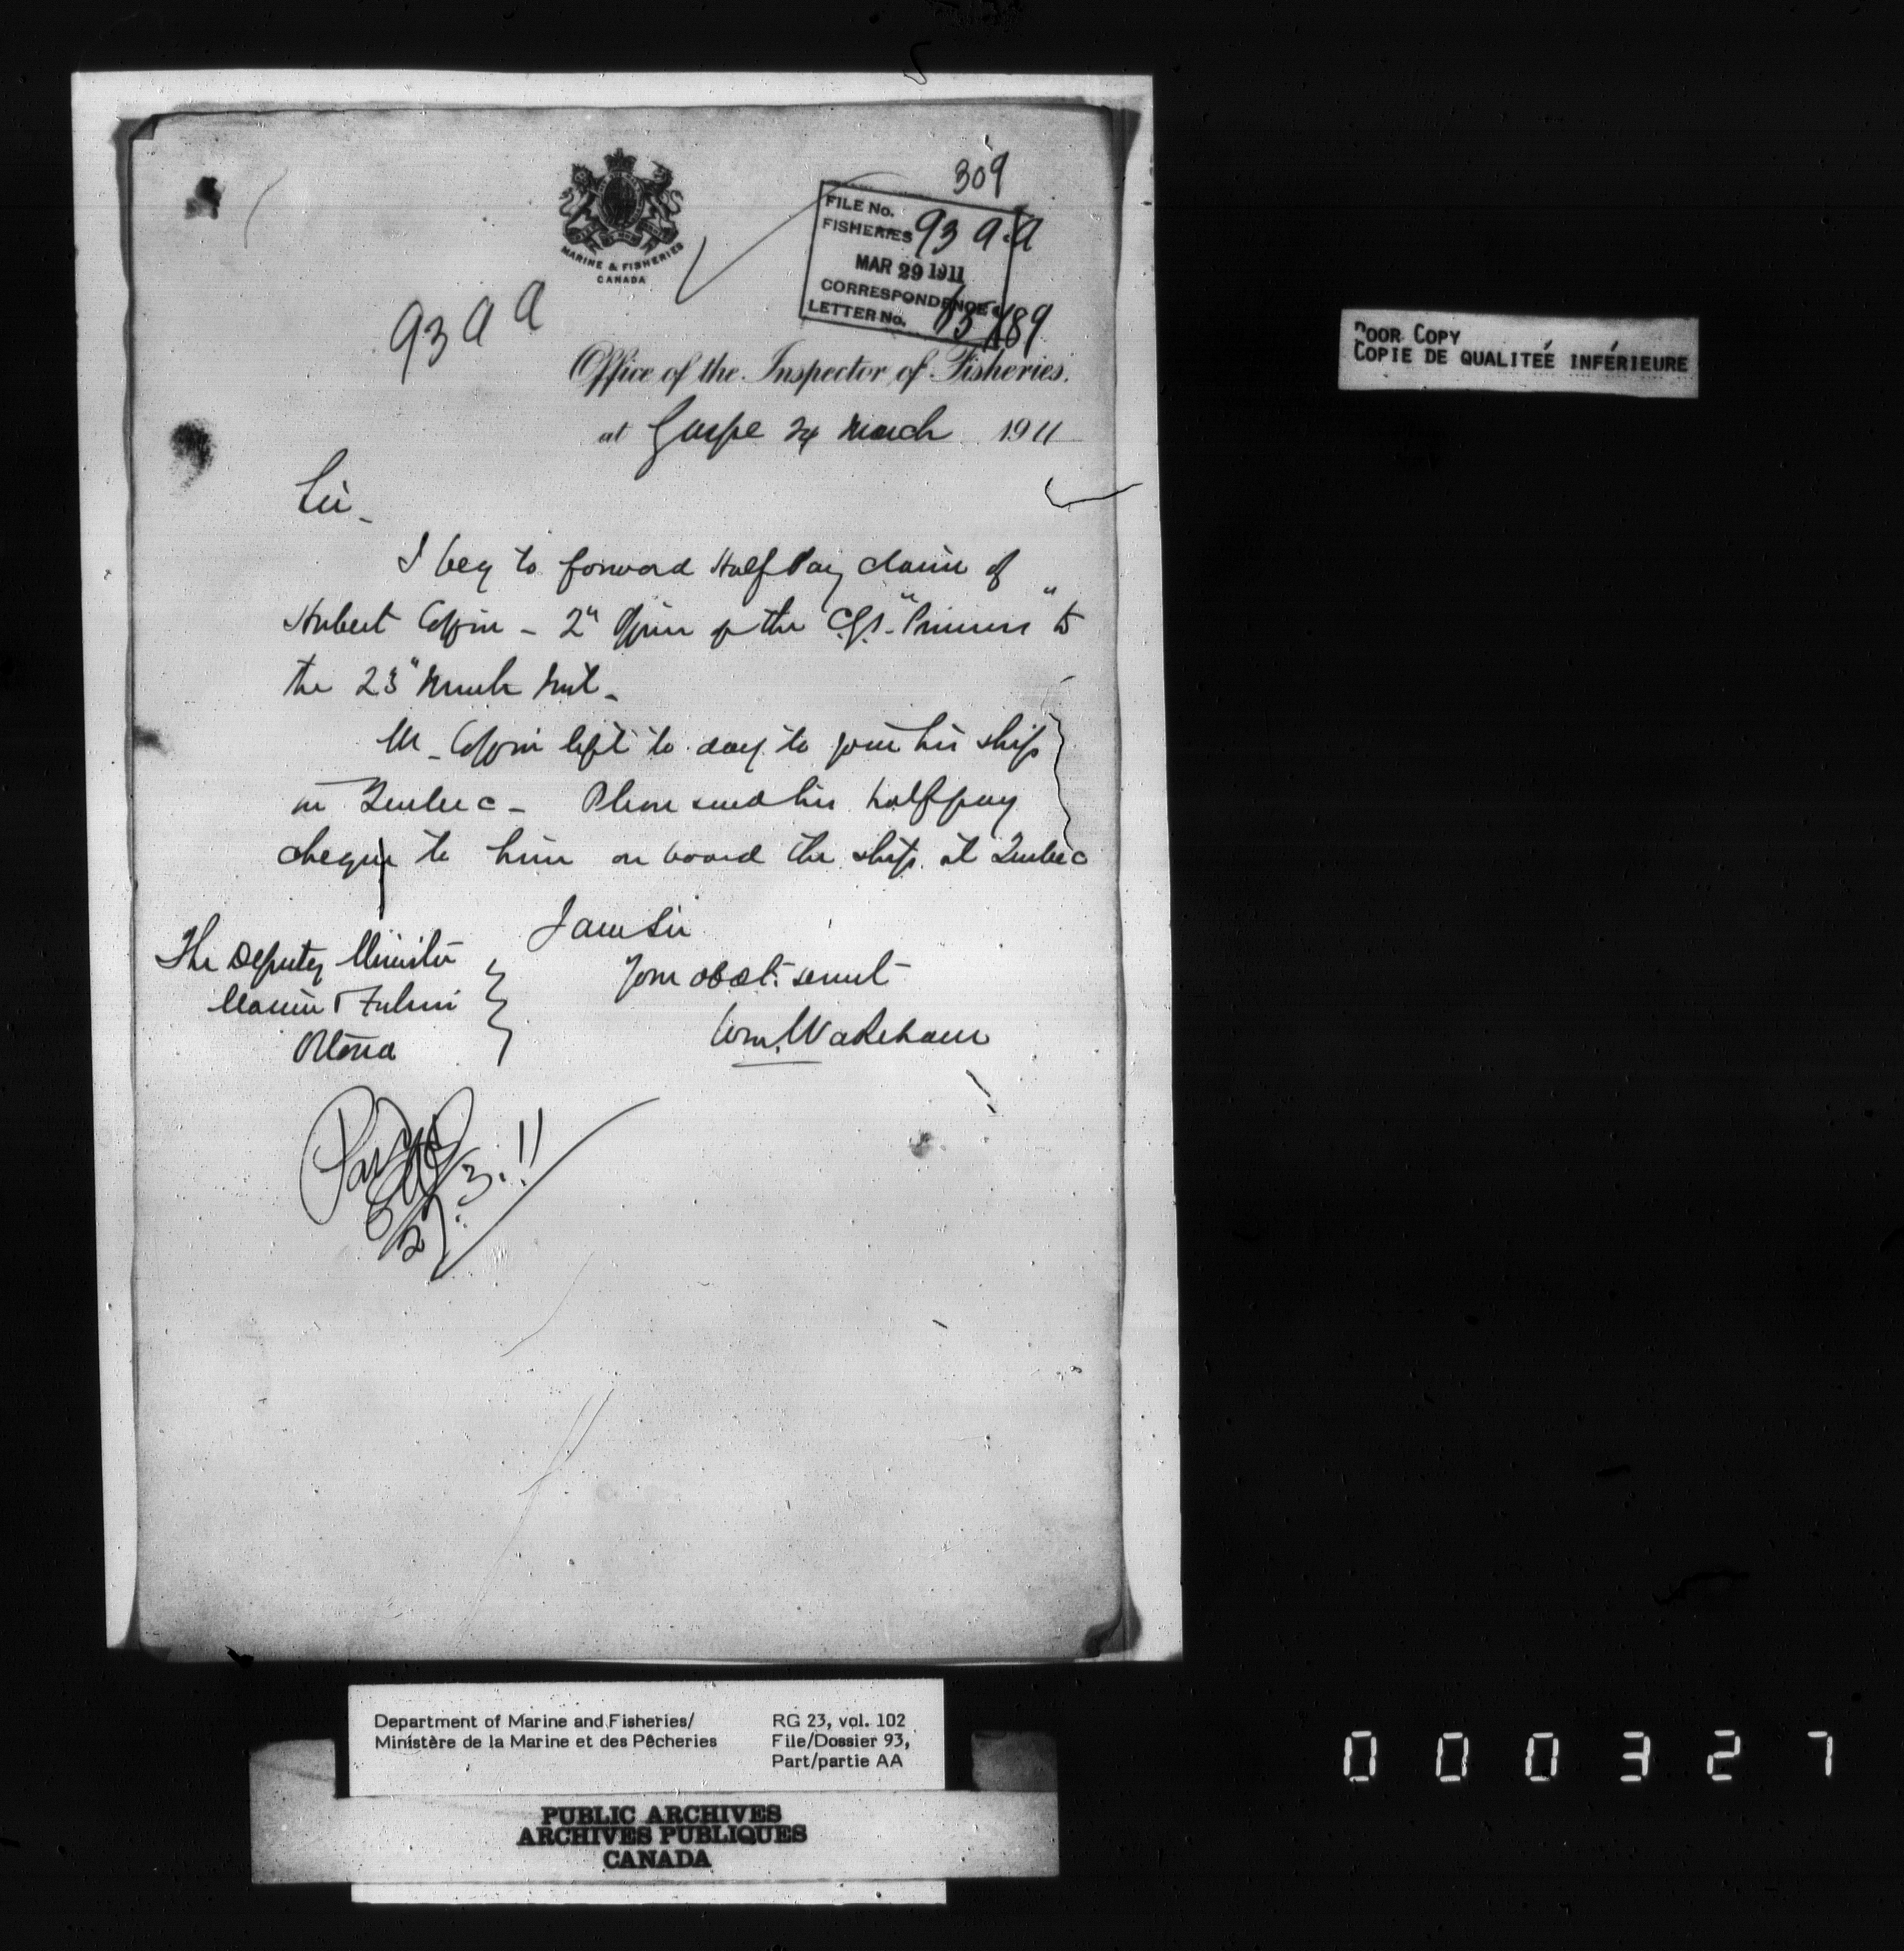 309
MARINE & FISHERIES
CANADA
FILE No.
FISHERIES 93 a.a
MAR 29 1911
CORRESPONDENCE
LETTER No.
93 a a
Office of the Inspector of Fisheries.
at Gaspe 24 March 1911
Sir_
I beg to forward Half Pay claim of
Hubert Coffin - 2" Officer of the C.G.S. "Princess" to
the 23" March
Mr_ Coffin left to day to join his ship
in Quebec_ Please send his half pay
cheque to him on board the ship at Quebec
I am Sir
Your obdt. servnt
Wm. Wakeham
The Deputy Minister
Marine & Fisheries
Ottawa
27.3.11
POOR COPY
COPIE DE QUALITEÉ INFÉRIEURE
Department of Marine and Fisheries/
Ministère de la Marine et des Pêcheries
RG 23, vol. 102
File/Dossier 93,
Part/partie AA
PUBLIC ARCHIVES
ARCHIVES PUBLIQUES
CANADA
000327